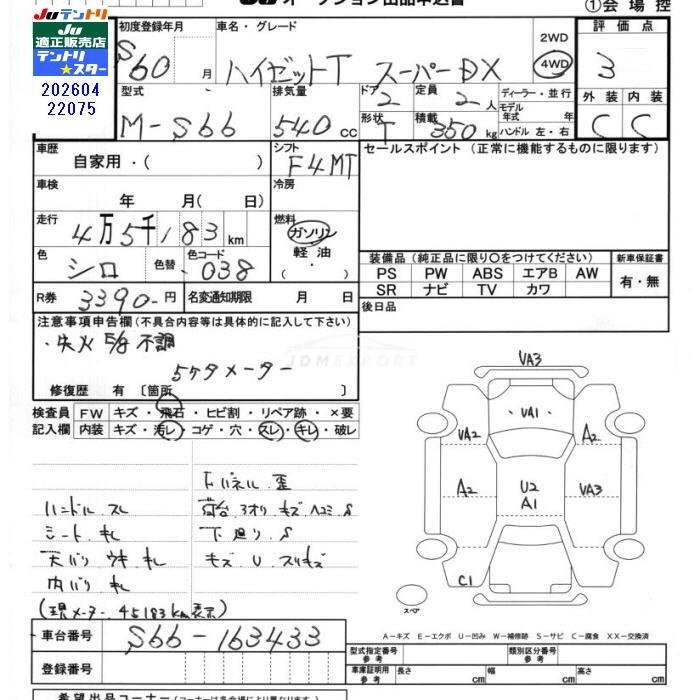 JU オークション出品申込書
①会場控
JUテントリ
JU
適正販売店
テントリ
★スター
202604
22075
初度登録年月
S60 月
車名・グレード
ハイゼットT スーパーDX
2WD
4WD
評価点
3
外装 内装
C C
型式
M-S66
排気量
540 cc
ドア
2
定員
2 人
形状
T
積載
350 kg
ディーラー・並行
モデル
年式 年
ハンドル 左・右
車歴
自家用・( )
シフト
F4MT
セールスポイント(正常に機能するものに限ります)
車検
年 月( 日)
冷房
走行
4万5千183 km
燃料
ガソリン
軽油
・
色
シロ
色替
色コード
・038
装備品(純正品に限り○をつけてください)
新車保証書
PS PW ABS エアB AW
SR ナビ TV カワ
有・無
R券 3390-円
名変通知期限 月 日
後日品
注意事項申告欄(不具合内容等は具体的に記入して下さい)
・失火 E/g 不調
5ケタメーター
JDMEXPORT
修復歴 有 〔箇所 〕
検査員
記入欄
FW キズ・飛石・ヒビ割・リペア跡・×要
内装 キズ・汚レ・コゲ・穴・スレ・キレ・破レ
ドパネル 歪
ハンドル スレ
荷台 3オリ キズ ヘコミ S
シート キレ
下廻り S
天バリ ウキ キレ
キズ U スリキズ
内バリ キレ
(現メーター 45183km表示)
VA3
VA1
VA2
A2
A2
U2
A1
VA3
C1
スペア
A－キズ E－エクボ U－凹み W－補修跡 S－サビ C－腐食 XX－交換済
車台番号
S66-163433
登録番号
型式指定番号
参考
類別区分番号
参考
車庫証明用
参考
長さ cm 幅 cm 高さ cm
希望出品コーナー(コーナーは各会場により異なります)